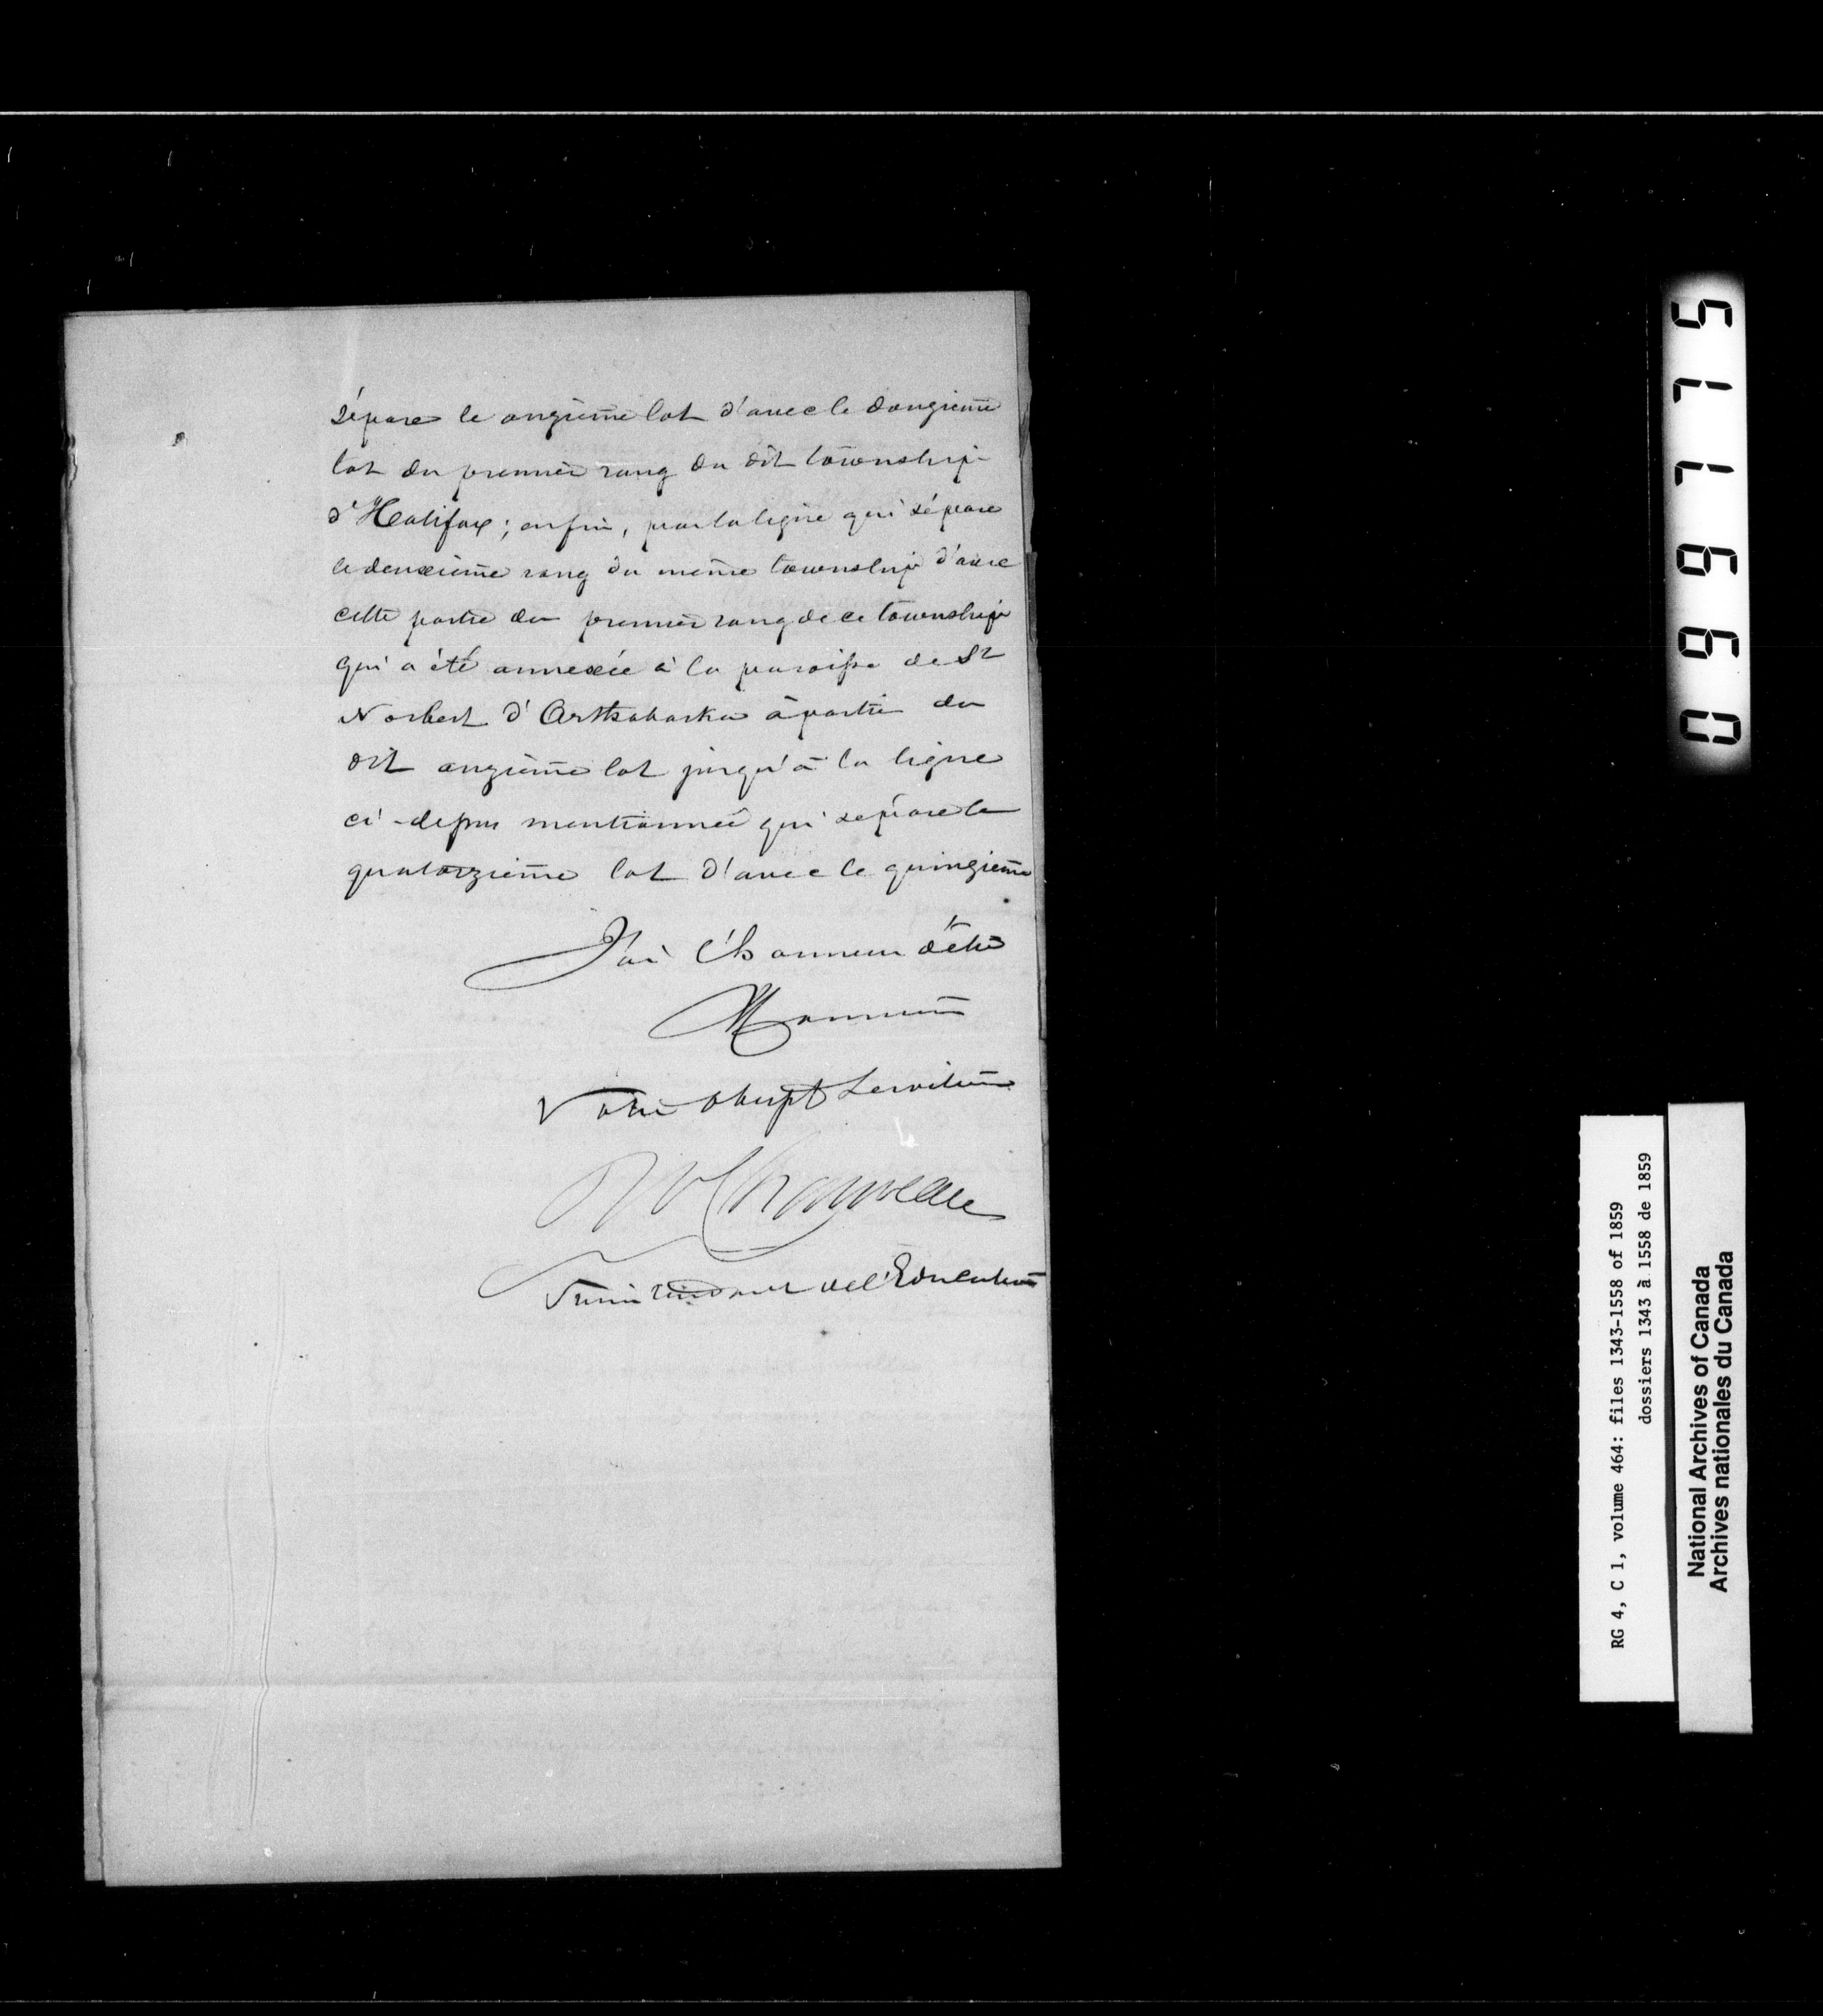 sépare le onzième lot d'avec le douzième
lot du premier rang du dit township
d'Halifax; enfin, par la ligne qui sépare
le deuxième rang du même township d'avec
cette partie du premier rang de ce township
qui a été annexée à la paroisse de St
Norbert d'Arthabaska à partir du
dit onzième lot jusqu'à la ligne
ci-dessus mentionnée qui sépare le
quatorzième lot d'avec le quinzième
J'ai l'honneur d'être
Monsieur
Votre obéisst Serviteur
Chauveau
Surintendant de l'Education
511660
RG 4, C 1, volume 464: files 1343-1558 of 1859
dossiers 1343 à 1558 de 1859
National Archives of Canada
Archives nationales du Canada